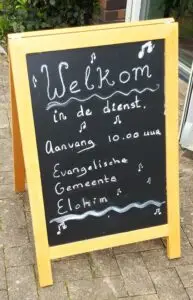 Welkom
in de dienst.
Aanvang 10.00 uur
Evangelische
Gemeente
Elohim